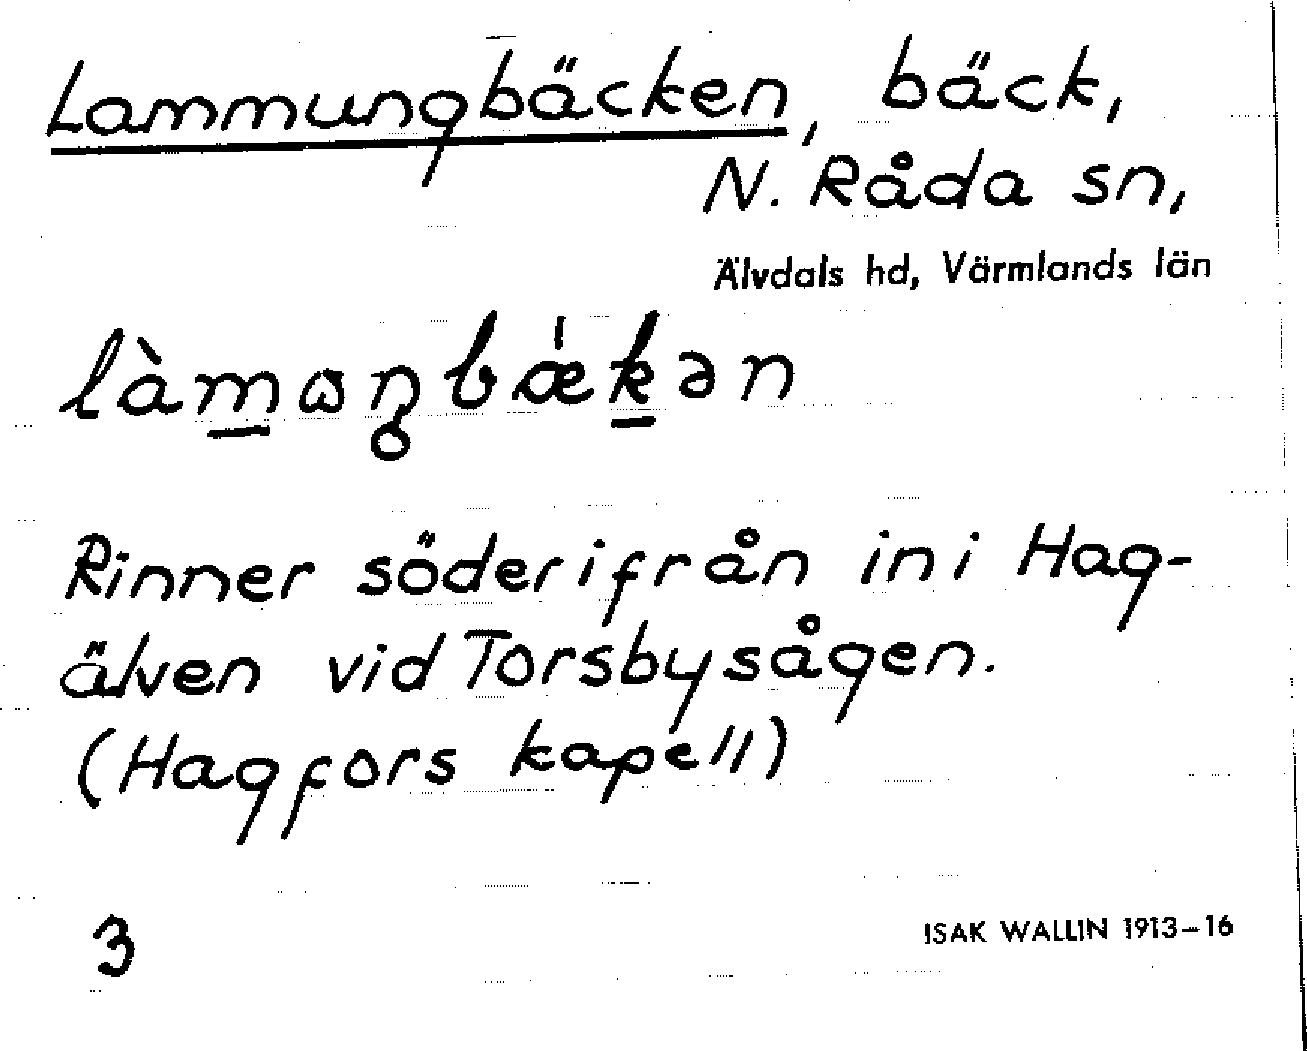 Lammungbäcken, bäck,
N. Råda sn,
Älvdals hd, Värmlands län
Rinner söderifrån in i Hag-
älven vid Torsbysågen.
(Hagfors kapell)
3
ISAK WALLIN 1913-16